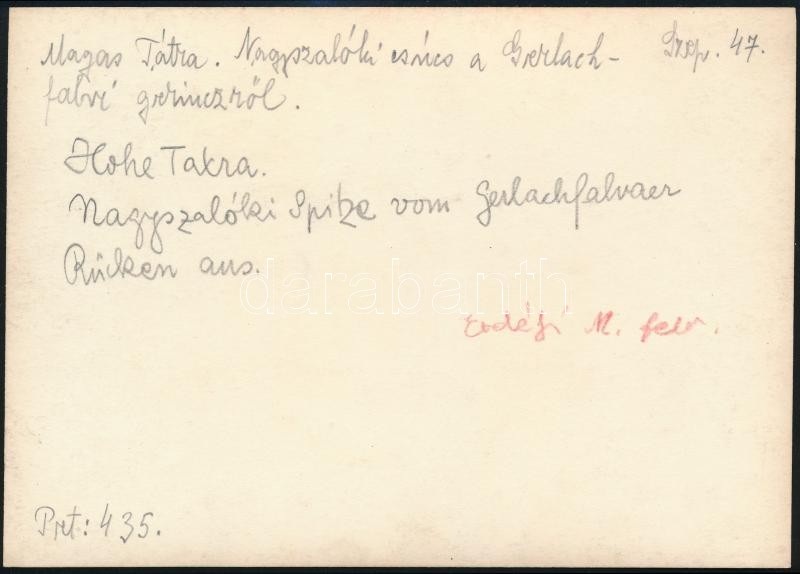 Magas Tátra. Nagyszalóki csúcs a Gerlach-
falvi gerinczről.
Szep. 47.
Hohe Takra.
Nagyszalóki Spitze vom Gerlachfalvaer
Rücken aus.
darabanth
Erdélyi M. felv.
Prt: 435.